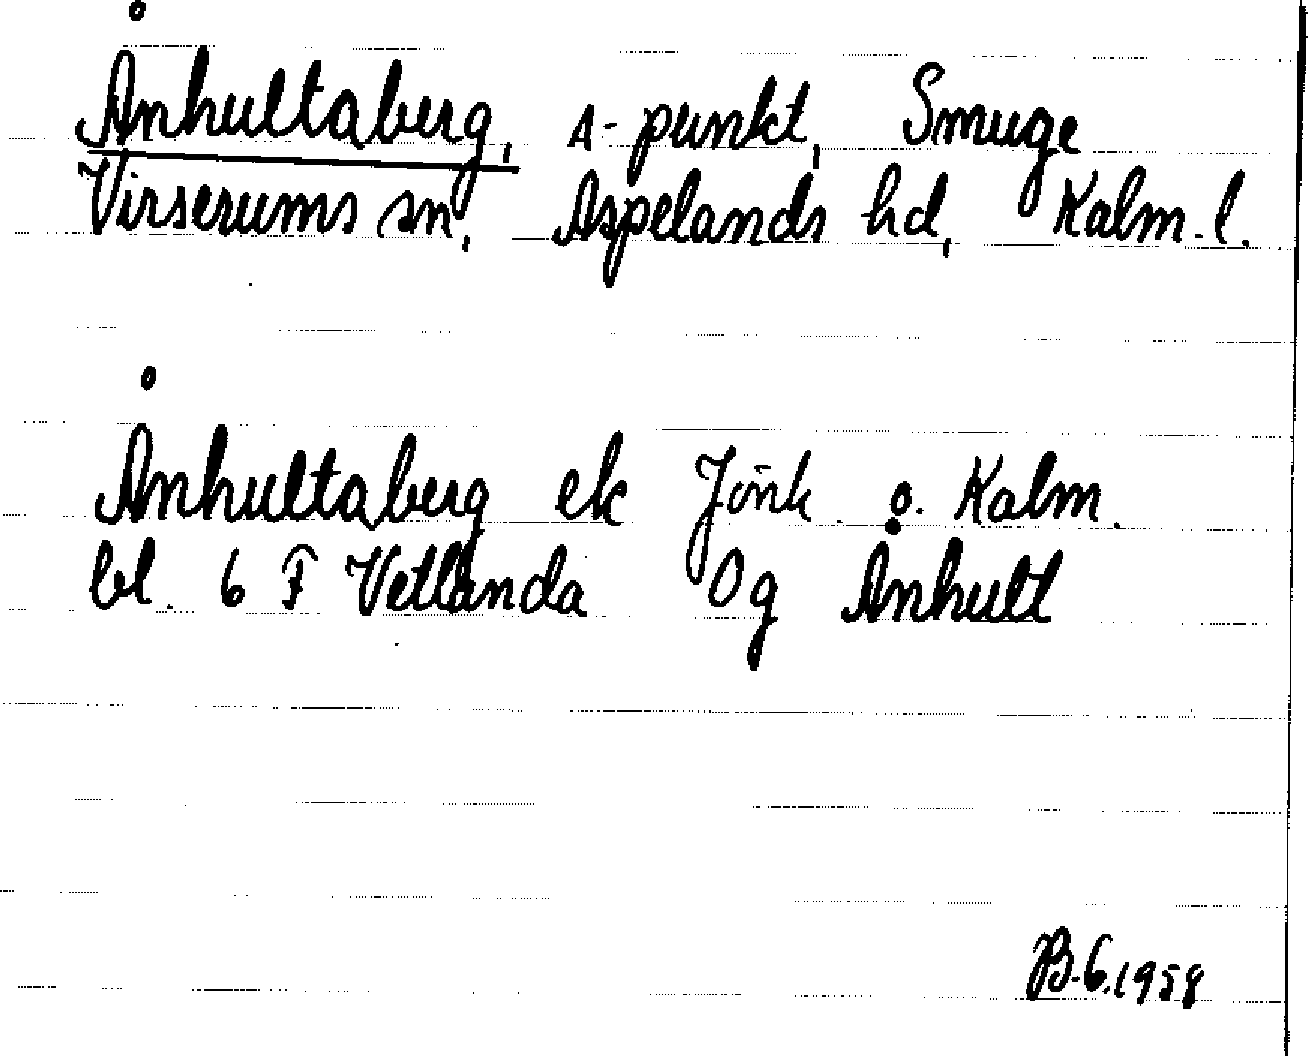 Ånhultaberg, Δ-punkt, Smuge
Virserums sn, Aspelands hd, Kalm. l.
Ånhultaberg ek Jönk. o. Kalm.
bl. 6 F Vetlanda Og Ånhult
B.G. 1958